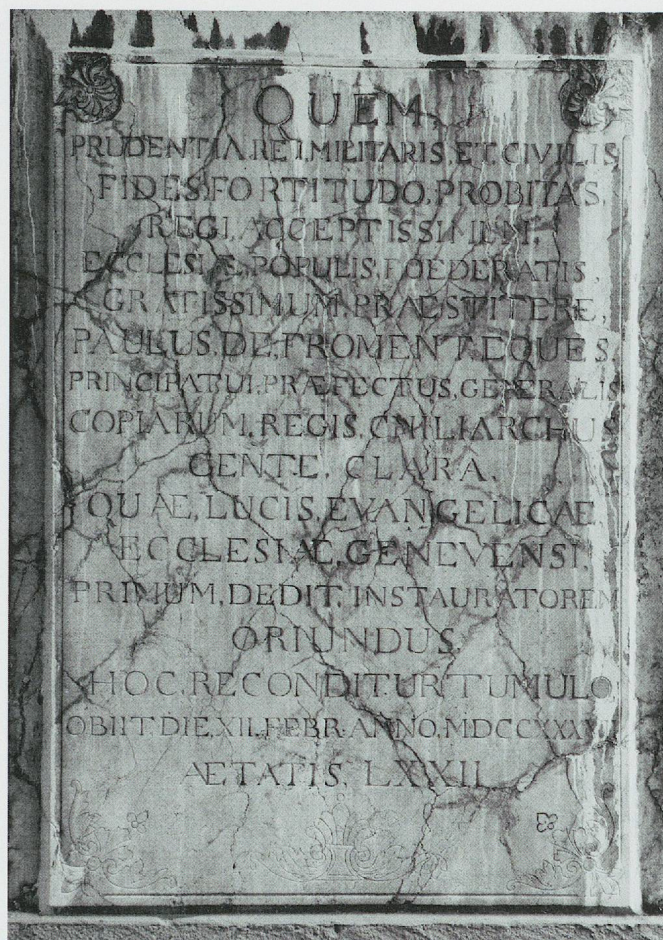 QUEM
PRUDENTIA.REI.MILITARIS.ET.CIVILIS
FIDES.FORTITUDO.PROBITAS.
REGI.ACCEPTISSIMUM.
ECCLESIÆ.POPULIS.FOEDERATIS.
GRATISSIMUM.PRAESTITERE,
PAULUS.DE.FROMENT.EQUES.
PRINCIPATUI.PRÆFECTUS.GENERALIS
COPIARUM.REGIS.CHILIARCHUS
GENTE.CLARA.
QUÆ.LUCIS.EVANGELICAE.
ECCLESIÆ.GENEVENSI.
PRIMUM.DEDIT.INSTAURATOREM
ORIUNDUS.
HOC.RECONDITUR TUMULO
OBIIT.DIE.XII.FEBR.ANNO.
ÆTATIS.LXXII